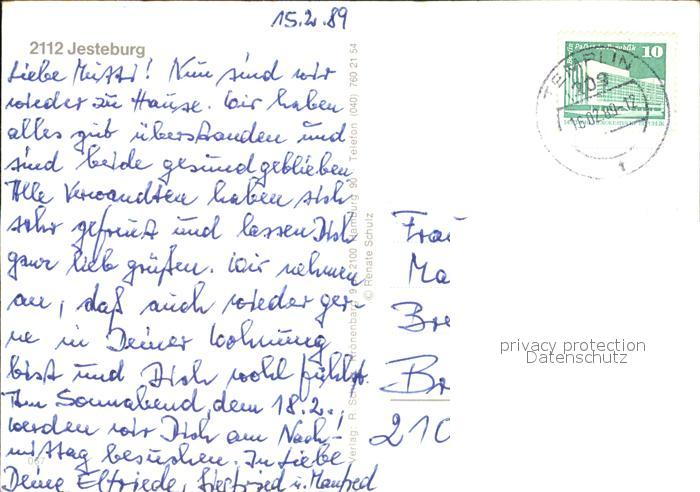 15.2.89
2112 Jesteburg
Liebe Mutti! Nun sind wir
wieder zu Hause. Wir haben
alles gut überstanden und
sind beide gesund geblieben
Alle Verwandten haben sich
sehr gefreut und lassen Dich
ganz lieb grüßen. Wir nehmen
an, daß auch wieder ger-
ne in Deiner Wohnung
bist und Dich wohl fühlst.
Am Sonnabend, dem 18.2.,
werden wir Dich am Nach-
mittag besuchen. In Liebe
Deine Elfriede, Siegfried u. Manfred
Telefon (040) 760 21 54
2100 Hamburg 90
© Renate Schulz
Palast der Republik 10
TEMPLIN
209
16.02.89-12
Frau
Ma
Bre
Br
210
privacy protection
Datenschutz